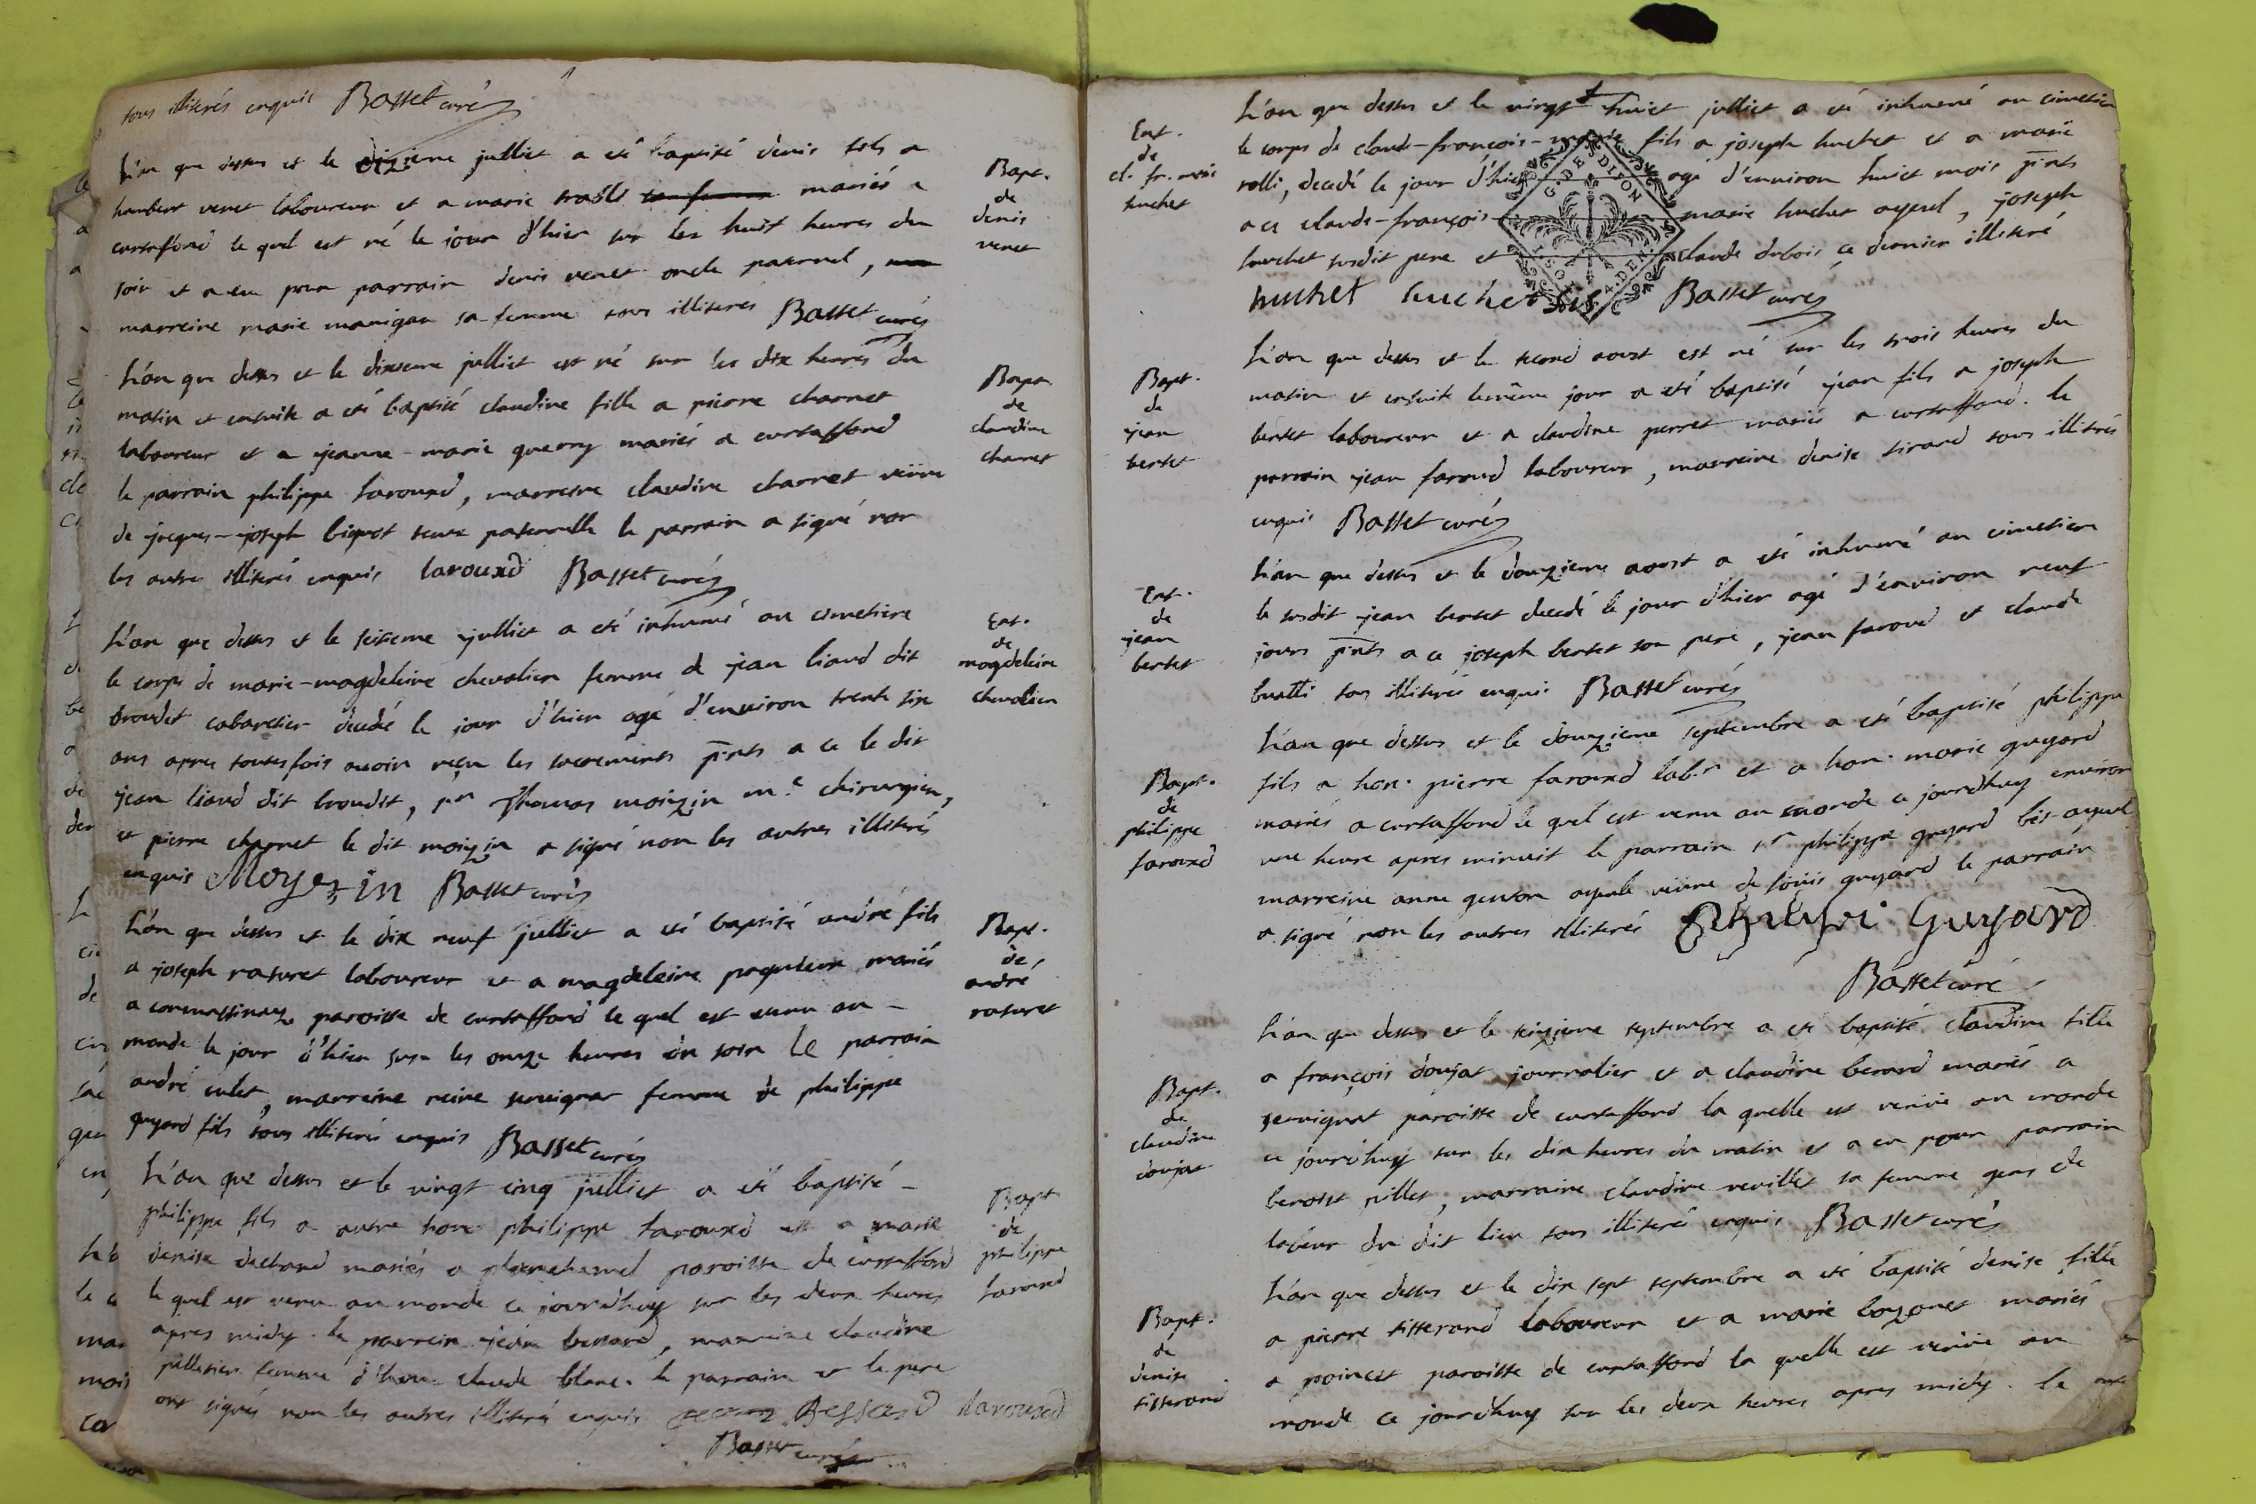 tous illiterés enquis Basset curé
L'an que dessus et le dizieme julliet a eté baptisé denis fils a
humbert venet laboureur et a marie mariés a
curtaffond le quel est né le jour d'hier sur les huit heures du
soir et a eu pour parrain denis venet oncle paternel,
marreine marie manigan sa femme tous illiterés Basset curé
Bapt.
de
denis
venet
L'an que dessus et le dixieme julliet est né sur les dix heures du
matin et ensuite a eté baptisé claudine fille a pierre charnet
laboureur et a jeanne-marie guerry mariés a curtaffond
le parrain philippe farouxd, marreine claudine charnet veuve
de jacques-joseph bignot paternelle le parrain a signé non
les autres illiterés enquis farouxd Basset curé
Bapt.
de
claudine
charnet
L'an que dessus et le seizieme julliet a eté inhumé au cimetiere
le corps de marie-magdeleine chevalier femme de jean liaud dit
broudet cabaretier decedé le jour d'hier agé d'environ trente six
ans apres toutesfois avoir reçu les sacrements pnts a ce le dit
jean liaud dit broudet, sr Thomas moizin me chirurgien,
et pierre charnet le dit moizin a signé non les autres illiterés
enquis Moyezin Basset curé
Ent.
de
magdeleine
chevalier
L'an que dessus et le dix neuf julliet a eté baptisé andré fils
a joseph raturet laboureur et a magdeleine paquelier mariés
a paroisse de curtaffond le quel est venu au
monde le jour d'hier sur les onze heures du soir le parrain
andré culet, marreine reine servignat femme de philippe
guyard fils tous illiterés enquis Basset curé
Bapt.
de
andré
raturet
L'an que dessus et le vingt cinq julliet a eté baptisé
philippe fils a autre hon. philippe farouxd et a marie
denise dechand mariés a paroisse de curtaffond
le quel est venu au monde ce jourdhuy sur les deux heures
apres midy. le parrein jean bessard, marreine claudine
pelletier femme d'hon. claude blanc. le parrain et le pere
ont signés non les autres illiterés enquis Bessard farouxd
Basset curé
Bapt.
de
philippe
farouxd
L'an que dessus et le vingt huict julliet a eté inhumé au cimetiere
le corps de claude-françois-marie fils a joseph huchet et a marie
rolli, decedé le jour d'hier agé d'environ huict mois pnts
a ce claude-françois marie huchet ayeul, joseph
huchet susdit pere et claude dubois ce dernier illiteré
huchet huchet fils Basset curé
G. DES DIJON
Ent.
de
cl. fr. marie
huchet
L'an que dessus et le second aoust est né sur les trois heures du
matin et ensuite le même jour a eté baptisé jean fils a joseph
bertet laboureur et a claudine perret mariés a curtaffond. le
parrain jean faroud laboureur, marreine denise tirand tous illiterés
enquis Basset curé
Bapt.
de
jean
bertet
L'an que dessus et le douzieme aoust a eté inhumé au cimetiere
le susdit jean bertet decedé le jour d'hier agé d'environ neuf
jours pnts a ce joseph bertet son pere, jean faroud et claude
buatti tous illiterés enquis Basset curé
Ent.
de
jean
bertet
L'an que dessus et le douzieme septembre a eté baptisé philippe
fils a hon. pierre farouxd labr et a hon. marie guyard
mariés a curtaffond le quel est venu au monde ce jourdhuy environ
une heure apres minuit le parrain sr philippe guyard bis ayeul
marreine anne genton ayeule veuve de louis guyard le parrain
a signé non les autres illiterés Philipi Guyard
Basset curé
Bapt.
de
philippe
farouxd
L'an que dessus et le seizieme septembre a eté baptisé claudine fille
a françois doujat journalier et a claudine berard mariés a
servignat paroisse de curtaffond la quelle est venüe au monde
ce jourdhuy sur les dix heures du matin et a eu pour parrain
benoist pillet, marraine claudine revillet sa femme gens de
labeur du dit lieu tous illiterés enquis Basset curé
Bapt.
de
claudine
doujat
L'an que dessus et le dix sept septembre a eté baptisé denise fille
a pierre tisserand laboureur et a marie bozonet mariés
a poincet paroisse de curtaffond la quelle est venüe au
monde ce jourdhuy sur les deux heures apres midy. le
Bapt.
de
denise
tisserand